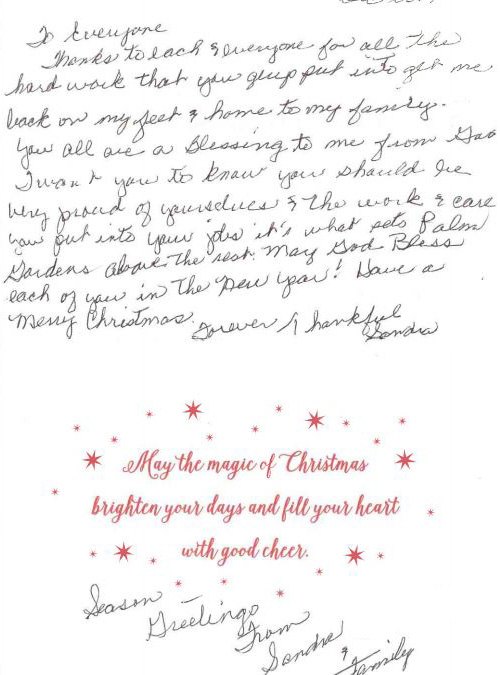 To Everyone
Thanks to each & everyone for all the
hard work that you guys put into get me
back on my feet & home to my family.
You all are a Blessing to me from God
I want you to know you should be
very proud of yourselves & the work & care
you put into your jobs it's what sets Palm
Gardens above the rest. May God Bless
each of you in the New Year! Have a
Merry Christmas.
Forever Thankful
Sandra
May the magic of Christmas
brighten your days and fill your heart
with good cheer.
Season
Greetings
From
Sandra
&
Family